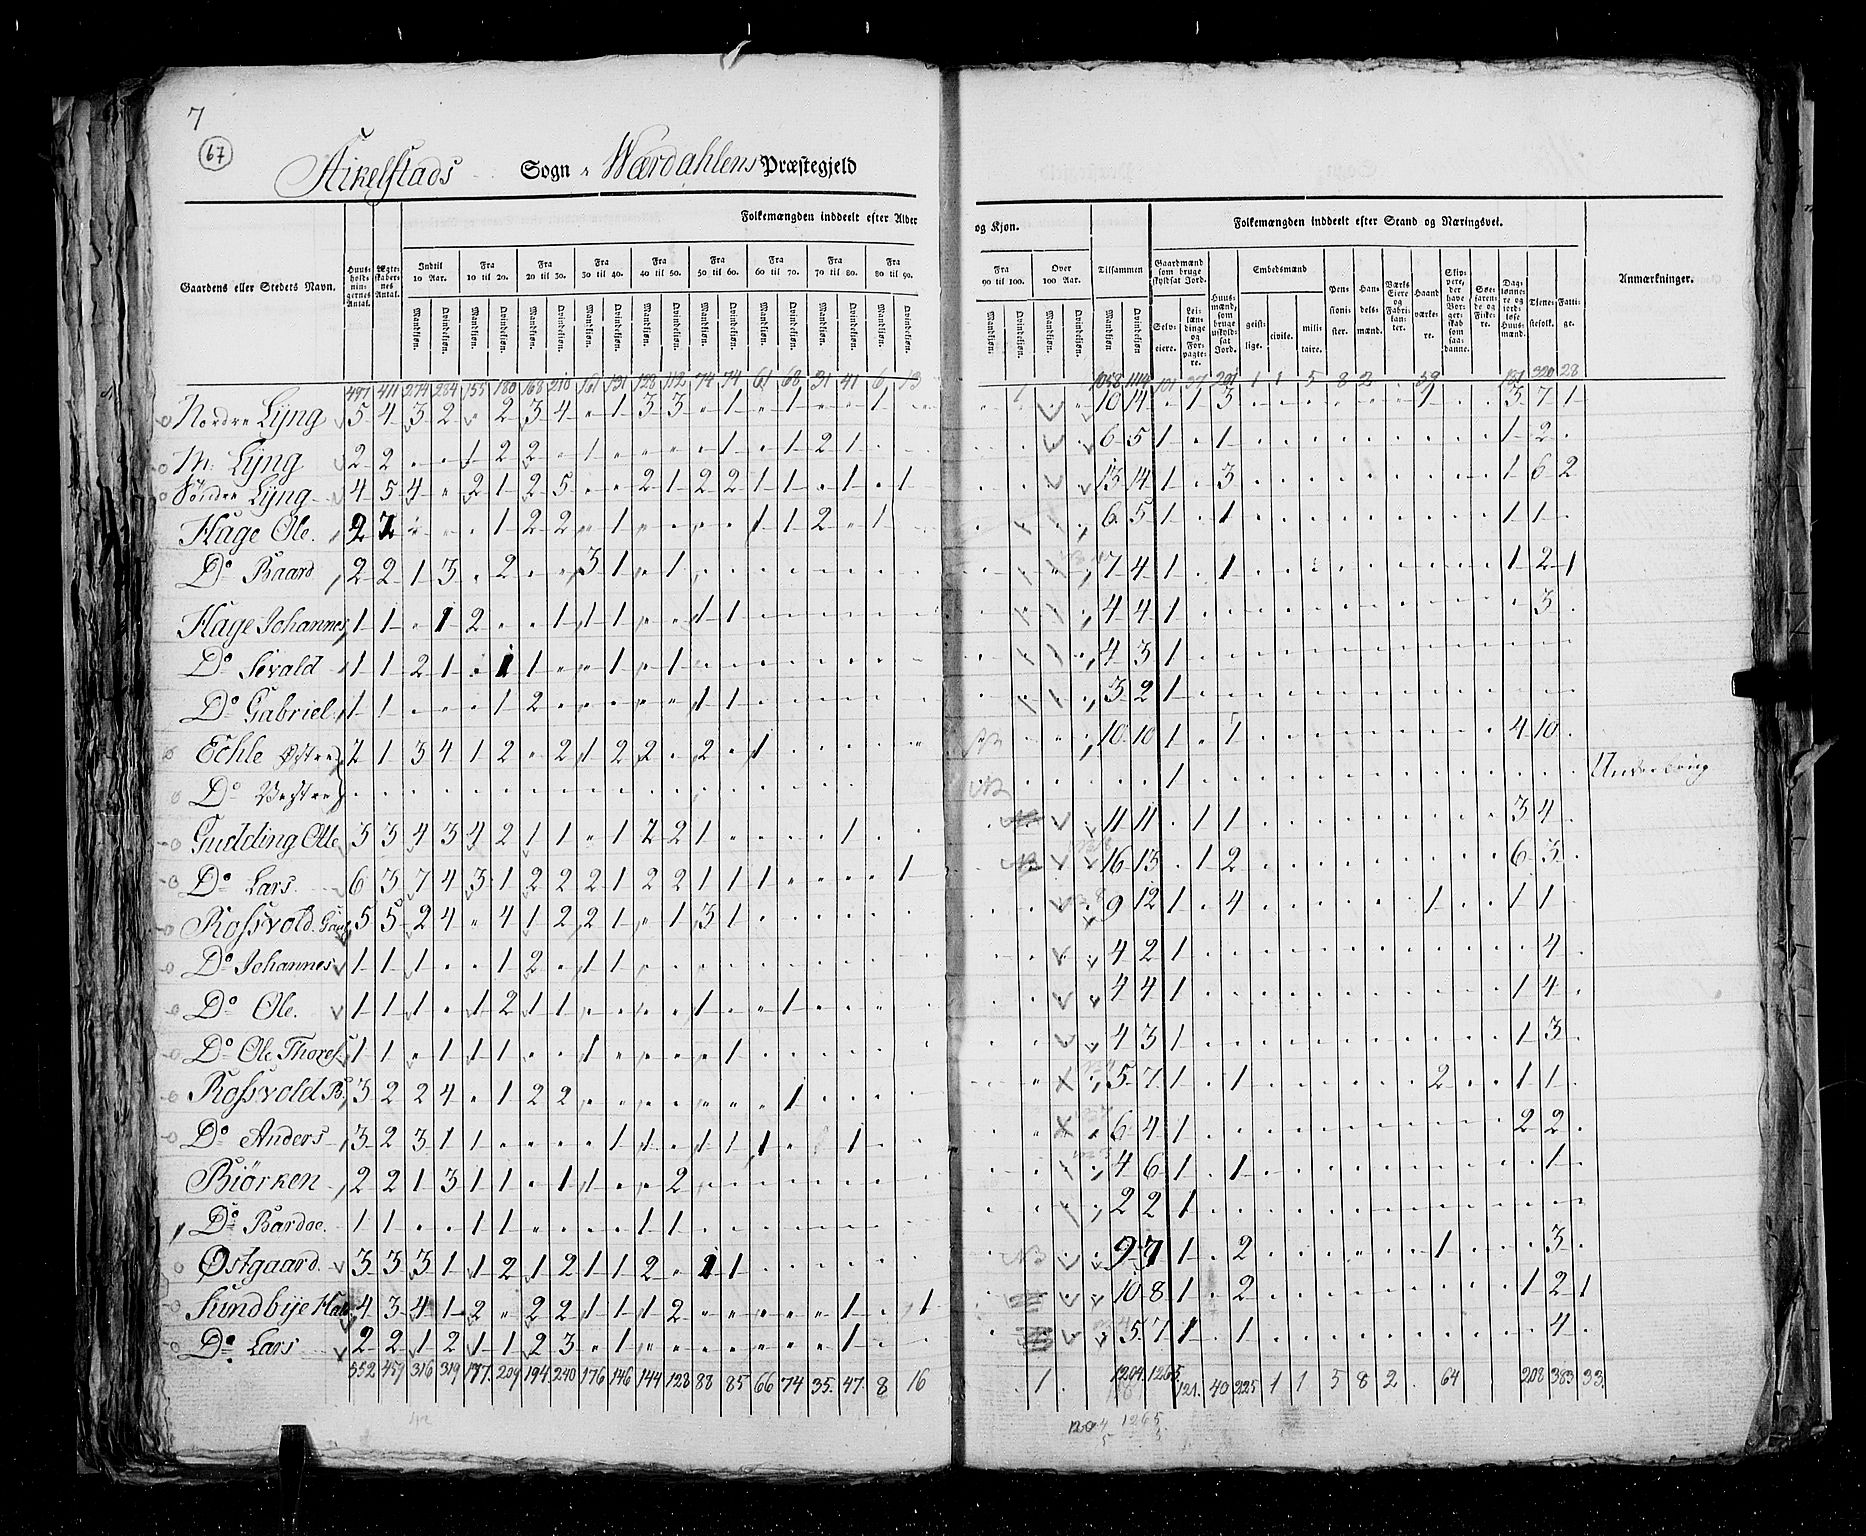 7
67
Stikelstads Sogn Wærdahlens Præstegjeld
Folkemængden inddeelt efter Alder
og Kjøn.
Folkemængden inddeelt efter Stand og Næringsvei.
Gaardens eller Steders Navn.
Huus-holdnin-gernes Antal.
Ægte-skaber-nes Antal.
Indtil 10 Aar.
Fra 10 til 20.
Fra 20 til 30.
Fra 30 til 40.
Fra 40 til 50.
Fra 50 til 60.
Fra 60 til 70.
Fra 70 til 80.
Fra 80 til 90.
Fra 90 til 100.
Over 100 Aar.
Tilsammen
Gaardmænd som bruge skyldsat Jord.
Huus-mænd, som bruge uskyld-sat Jord.
Embedsmænd
Pen-sioni-ster.
Han-dels-mænd.
Værks Eiere og Fabri-kan-ter.
Haand værke-re.
Skip-pere, der have Bor-ger-skab som saa-danne.
Søe-faren-de og Fiske-re.
Dag-lønne-re og jord-løse Huus-mænd.
Tjene-stefolk.
Fatti-ge.
Anmærkninger.
Mandkjøn. Qvindekjøn.
Selv-eiere.
Lei-læn-dinge og For-pagte-re.
geist-lige.
civile.
mili-taire.
497 411 274 284 155 180 168 210 161 131 128 112 74 74 61 68 31 41 6 13 1 1058 1114 101 37 201 1 1 5 8 2 59 181 320 28
Nordre Lyng 5 4 3 2 2 3 4 1 3 3 1 1 1 10 14 1 3 1 3 7 1
M: Lyng 2 2 1 2 2 1 1 1 2 1 6 5 1 1 1 2
Søndre Lyng 4 5 4 2 1 2 5 2 1 2 2 1 1 1 1 13 14 1 3 1 6 2
Hage Ole. 2 2 1 2 2 1 1 1 2 1 6 5 1 1 1 1
Do Baard 2 2 1 3 2 3 1 1 7 4 1 1 1 2 1
Hage Johannes 1 1 1 2 1 1 1 1 1 4 4 1 3
Do Sivald 1 1 2 1 1 1 1 1 4 3 1
Do Gabriel 1 1 1 2 1 1 3 2 1
Echle Østre 2 1 3 4 1 2 2 1 2 2 2 1 10 10 1 7 4 10
Do Vestre 1 Underbrug
Gudding Ole 3 3 4 3 4 2 1 1 1 2 2 1 1 11 11 1 1 3 4
Do Lars 6 3 7 4 3 1 2 2 2 1 2 2 1 1 1 1 16 13 1 2 6 3
Rosvold 5 5 2 4 4 1 2 2 1 1 3 1 9 12 1 4 1 1 1
Do Johannes 1 1 1 1 2 1 1 4 2 1 4
Do Ole. 1 1 1 1 2 1 1 1 1 4 4 1 1 4
Do Ole Thores 1 1 1 1 1 1 1 4 3 1 1 3
Rosvold 3 2 2 4 1 2 2 1 5 7 1 1 2 1 1
Do Anders 3 2 3 1 1 1 1 1 1 1 1 6 4 1 2 2
Biørken 2 2 1 3 1 1 1 1 2 4 6 1 1 1
Do Bardoe. 1 1 1 1 1 1 2 2 1
Østgaard 3 3 3 1 1 2 1 2 1 1 2 1 1 9 7 1 2 1 3
Sundbye 4 3 4 1 2 2 2 1 1 1 2 1 1 10 8 1 2 1 2 1
Do Lars 2 2 1 2 1 1 2 3 1 1 5 7 1 1 4
552 459 316 319 177 209 194 240 176 146 144 128 88 85 66 74 35 47 8 16 1 1204 1265 121 40 225 1 1 5 8 2 64 208 383 33
1204 1265